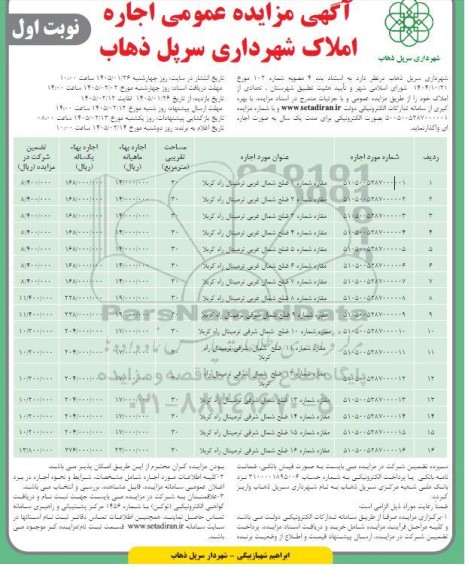 آگهی مزایده عمومی اجاره
املاک شهرداری سرپل ذهاب
نوبت اول
شهرداری سرپل ذهاب
شهرداری سرپل ذهاب در نظر دارد به استناد بند ۴ مصوبه شماره ۱۰۲ مورخ
۱۴۰۴/۱۰/۲۱ شورای اسلامی شهر و تأیید هئیت تطبیق شهرستان ، تعدادی از
املاک خود را از طریق مزایده عمومی و با جزئیات مندرج در اسناد مزایده، با بهره
گیری از سامانه تدارکات الکترونیکی دولت www.setadiran.ir و با شماره مزایده
بصورت الکترونیکی برای مدت یک سال به صورت اجاره
ای واگذار نماید.
تاریخ انتشار در سایت: روز چهارشنبه ۱۴۰۵/۰۱/۲۶ ساعت ۱۰:۰۰
مهلت دریافت اسناد: روز چهارشنبه مورخ ۱۴۰۵/۰۲/۰۲ ساعت ۱۰:۰۰
تاریخ بازدید: از تاریخ ۱۴۰۵/۰۱/۲۶ لغایت ۱۴۰۵/۰۲/۱۲
مهلت ارسال پیشنهاد: روز شنبه مورخ ۱۴۰۵/۰۲/۱۲ ساعت ۱۰:۰۰
تاریخ بازگشایی پیشنهادات: روز یکشنبه مورخ ۱۴۰۵/۰۲/۱۳ ساعت ۰۸:۰۰
تاریخ اعلام به برنده: روز دوشنبه مورخ ۱۴۰۵/۰۲/۱۴
ردیف شماره مورد اجاره عنوان مورد اجاره مساحت تقریبی (مترمربع) اجاره بهاء ماهیانه (ریال) اجاره بهاء یکساله (ریال) تضمین شرکت در مزایده (ریال)
۱ مغازه شماره ۱ ضلع شمال غربی ترمینال راه کربلا ۳۰ ۱۴/۰۰۰/۰۰۰ ۱۶۸/۰۰۰/۰۰۰ ۸/۴۰۰/۰۰۰
۲ مغازه شماره ۲ ضلع شمال غربی ترمینال راه کربلا ۳۰ ۱۴/۰۰۰/۰۰۰ ۱۶۸/۰۰۰/۰۰۰ ۸/۴۰۰/۰۰۰
۳ مغازه شماره ۳ ضلع شمال غربی ترمینال راه کربلا ۳۰ ۱۴/۰۰۰/۰۰۰ ۱۶۸/۰۰۰/۰۰۰ ۸/۴۰۰/۰۰۰
۴ مغازه شماره ۴ ضلع شمال غربی ترمینال راه کربلا ۳۰ ۱۴/۰۰۰/۰۰۰ ۱۶۸/۰۰۰/۰۰۰ ۸/۴۰۰/۰۰۰
۵ مغازه شماره ۵ ضلع شمال غربی ترمینال راه کربلا ۳۰ ۱۴/۰۰۰/۰۰۰ ۱۶۸/۰۰۰/۰۰۰ ۸/۴۰۰/۰۰۰
۶ مغازه شماره ۶ ضلع شمال غربی ترمینال راه کربلا ۳۰ ۱۴/۰۰۰/۰۰۰ ۱۶۸/۰۰۰/۰۰۰ ۸/۴۰۰/۰۰۰
۷ مغازه شماره ۷ ضلع شمال غربی ترمینال راه کربلا ۳۰ ۱۴/۰۰۰/۰۰۰ ۱۶۸/۰۰۰/۰۰۰ ۸/۴۰۰/۰۰۰
۸ مغازه شماره ۸ ضلع شمال غربی ترمینال راه کربلا ۳۰ ۲۲۸/۰۰۰/۰۰۰ ۱۱/۴۰۰/۰۰۰
۹ مغازه شماره ۹ ضلع شمال شرقی ترمینال راه کربلا ۳۰ ۲۲۸/۰۰۰/۰۰۰ ۱۱/۴۰۰/۰۰۰
۱۰ مغازه شماره ۱۰ ضلع شمال شرقی ترمینال راه کربلا ۳۰ ۲۰۴/۰۰۰/۰۰۰ ۱۰/۲۰۰/۰۰۰
۱۱ مغازه شماره ۱۱ ضلع شمال شرقی ترمینال راه کربلا ۲۰۴/۰۰۰/۰۰۰ ۱۰/۲۰۰/۰۰۰
۱۲ مغازه شماره ۱۲ ضلع شمال شرقی ترمینال راه کربلا ۲۰۴/۰۰۰/۰۰۰ ۱۰/۲۰۰/۰۰۰
۱۳ مغازه شماره ۱۳ ضلع شمال شرقی ترمینال راه کربلا ۳۰ ۲۰۴/۰۰۰/۰۰۰ ۱۰/۲۰۰/۰۰۰
۱۴ مغازه شماره ۱۴ ضلع شمال شرقی ترمینال راه کربلا ۳۰ ۲۰۴/۰۰۰/۰۰۰ ۱۰/۲۰۰/۰۰۰
۱۵ مغازه شماره ۱۵ ضلع شمال شرقی ترمینال راه کربلا ۳۰ ۲۰۴/۰۰۰/۰۰۰ ۱۰/۲۰۰/۰۰۰
۱۶ مغازه شماره ۱۶ ضلع شمال شرقی ترمینال راه کربلا ۳۰ ۲۳/۰۰۰/۰۰۰ ۲۷۶/۰۰۰/۰۰۰ ۱۳/۸۰۰/۰۰۰
سپرده تضمین شرکت در مزایده می بایست به صورت فیش بانکی، ضمانت
نامه بانکی یا پرداخت الکترونیکی به شماره حساب
بانک ملی شعبه مرکزی سرپل ذهاب به نام شهرداری سرپل ذهاب واریز
ضمناً رعایت موارد ذیل الزامی است:
۱-برگزاری مزایده صرفا از طریق سامانه تدارکات الکترونیکی دولت می باشد
و کلیه مراحل فرآیند مزایده شامل خرید و دریافت اسناد مزایده، پرداخت
تضمین شرکت در مزایده، ارسال پیشنهاد قیمت و اطلاع از وضعیت برنده
بودن مزایده گران محترم از این طریق امکان پذیر می باشد.
۲-کلیه اطلاعات مورد اجاره شامل مشخصات، شرایط و نحوه اجاره در برد
اعلان عمومی سامانه مزایده، قابل مشاهده، بررسی و انتخاب می باشد.
۳-علاقمندان به شرکت در مزایده می بایست جهت ثبت نام و دریافت
گواهی الکترونیکی (توکن) با شماره ۱۴۵۶ مرکز پشتیبانی و راهبری سامانه
تماس حاصل نمایند. همچنین اطلاعات تماس دفاتر ثبت نام استانها در
سایت سامانه www.setadiran.ir قسمت ثبت نام/مزایده گر موجود می
باشد.
ابراهیم شهبازبیگی - شهردار سرپل ذهاب